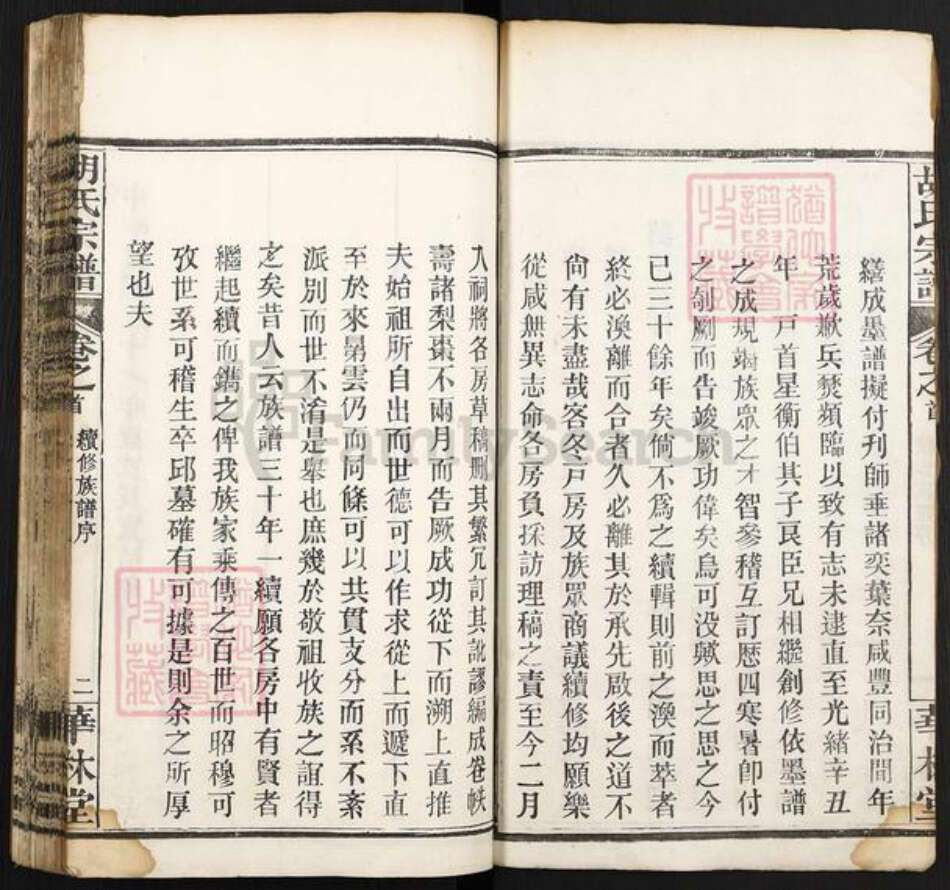 胡氏宗譜
卷之首
華林堂
繕成墨譜擬付刋師垂諸奕葉奈咸豐同治間年
荒歲歉兵燹頻臨以致有志未逮直至光緒辛丑
年戶首星衡伯其子良臣兄相繼創修依墨譜
之成規竭族眾之才智參稽互訂歷四寒暑卽付
之剞劂而告竣厥功偉矣烏可没歟思之思之今
已三十餘年矣倘不爲之續輯則前之渙而萃者
終必渙離而合者久必離其於承先啟後之道不
尙有未盡哉客冬戸房及族眾商議續修均願樂
從咸無異志命各房負採訪理稿之責至今二月
入祠將各房草稿刪其繁冗訂其訛謬編成卷帙
壽諸梨棗不兩月而告厥成功從下而溯上直推
夫始祖所自出而世德可以作求從上而遞下直
至於來晜雲仍而同條可以共貫支分而系不紊
派別而世不淆是舉也庶幾於敬祖收族之誼得
之矣昔人云族譜三十年一續願各房中有賢者
繼起續而鐫之俾我族家乘傳之百世而昭穆可
攷世系可稽生卒邱墓確有可據是則余之所厚
望也夫
胡氏宗譜
卷之首
續修族譜序
二
華林堂
FamilySearch